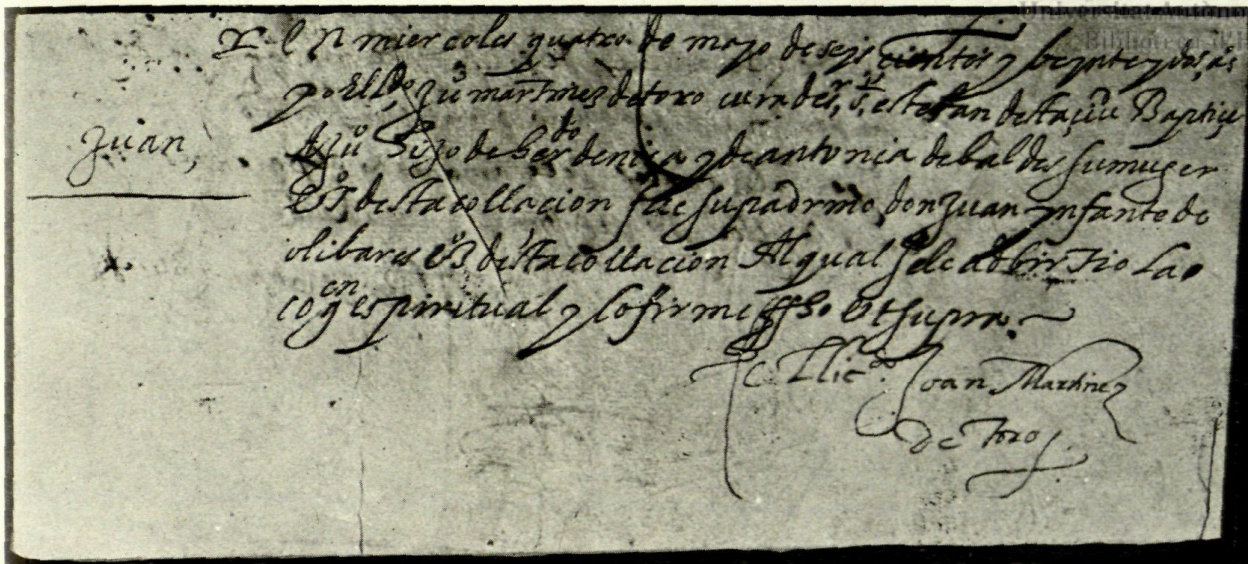 En miercoles quatro de mayo de seis cientos y beynte y dos as
yo El Ldo Ju martines de toro cura de sr s. esteban desta ciu Baptice
Juan,
A Ju hijo de berdo de nica y de antonia de baldes su muger
Vs desta collacion fue su padrino don Juan ynfante de
olibares Vo desta collacion Al qual se le adbirtio La
cogcn espiritual y lo firme ffho Ut supra
El Llicdo Joan Martinez
de Toro